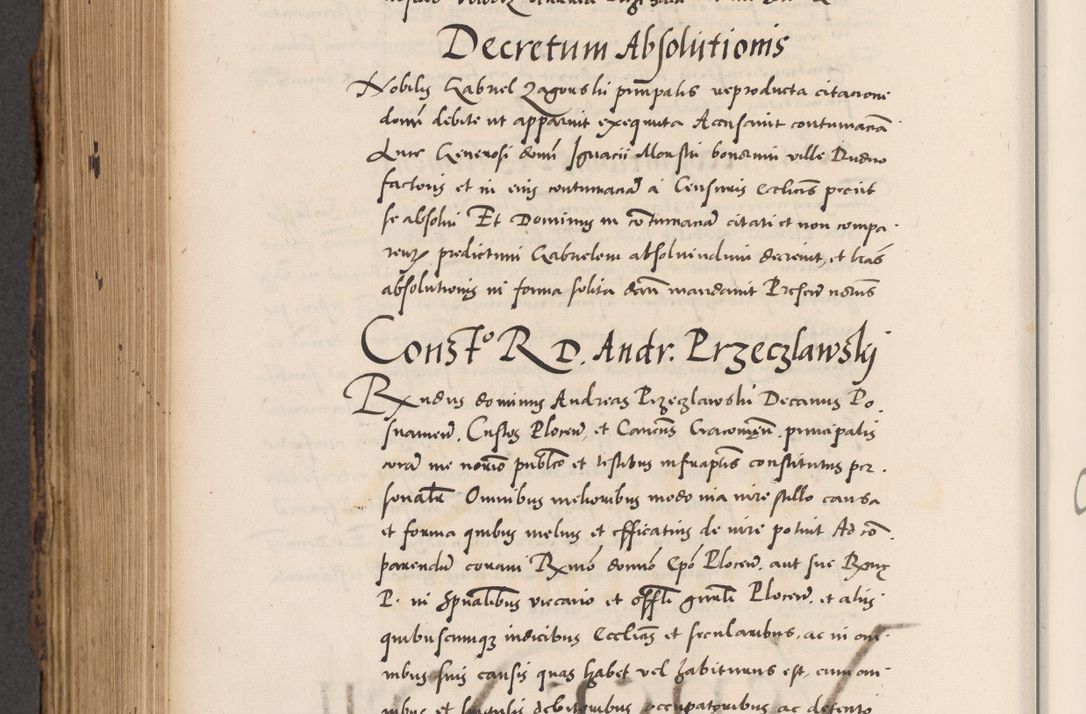 Decretum Absolutionis
Nobilis Gabriel Zagorski principalis reproducta citacione
domi debite ut apparuit exequuta Accusavit contumaciam
Generosi domi Ignacii bonorum ville
factoris et in eius contumaciam a Censuris Ecclicis petiit
se absolvi Et Dominus in contumaciam citati et non compa
rentis predictum Gabrielem absolvendum decrevit, et lras
absolutionis in forma solita dari mandavit Presen
Constº R D. Andr. Przeczlawskj
Rndus dominus Andreas Przeczlawski Decanus Po
snanien. Custos Plocen, et Canonicus Cracovien. principalis
coram me notario publico et testibus infraptis constitutus per
sonaliter Omnibus melioribus modo via iure stillo causa
et forma quibus melius et efficatius de iure potuit Ad com
parendum coram Rmo domino Epo Plocen. aut sue Rme
P. in spualibus vicario et offli gnrali Plocen. et aliis
quibuscumque iudicibus Ecclicis et secularibus, ac in om
nibus suis causis quas habet vel habiturus est, cum om
nibus et singulis debitoribus occupatoribus ac detento